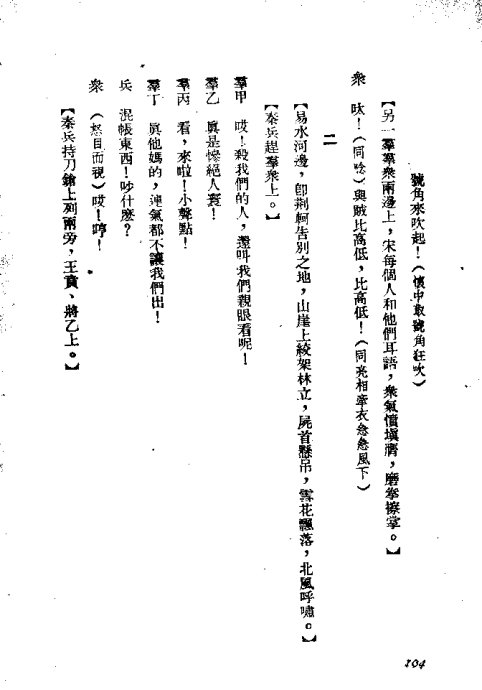 號角來吹起！（懷中取號角狂吹）
【另一羣羣衆兩邊上，宋每個人和他們耳語，衆氣憤塡膺，磨拳擦掌。】
衆　呔！（同唸）與賊比高低，比高低！（同亮相牽衣急急風下）
二
【易水河邊，卽荆軻告別之地，山崖上絞架林立，屍首懸吊，雪花飄落，北風呼嘯。】
【秦兵趕羣衆上。】
羣甲　哎！殺我們的人，還叫我們親眼看呢！
羣乙　眞是慘絕人寰！
羣丙　看，來啦！小聲點！
羣丁　眞他媽的，連氣都不讓我們出！
兵　混帳東西！吵什麼？
衆　（怒目而視）哎！哼！
【秦兵持刀鎗上列兩旁，王賁、將乙上。】
104